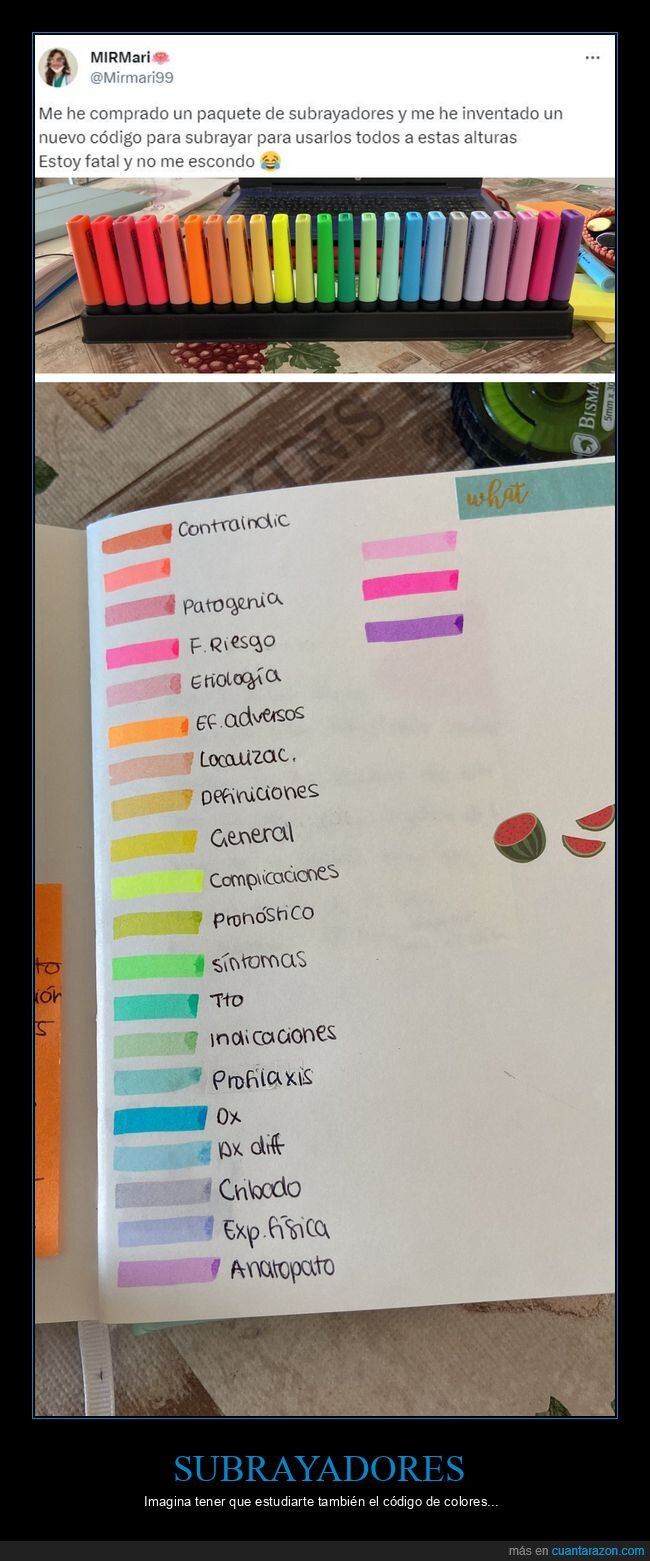 MIRMari
@Mirmari99
Me he comprado un paquete de subrayadores y me he inventado un
nuevo código para subrayar para usarlos todos a estas alturas
Estoy fatal y no me escondo 😂
BISMA
5mm x 30
what
Contraindic
Patogenia
F. Riesgo
Etiología
Ef. adversos
Localizac.
Definiciones
General
Complicaciones
Pronóstico
Síntomas
Tto
Indicaciones
Profilaxis
Dx
Dx diff
Cribado
Exp. física
Anatopato
SUBRAYADORES
Imagina tener que estudiarte también el código de colores...
más en cuantarazon.com